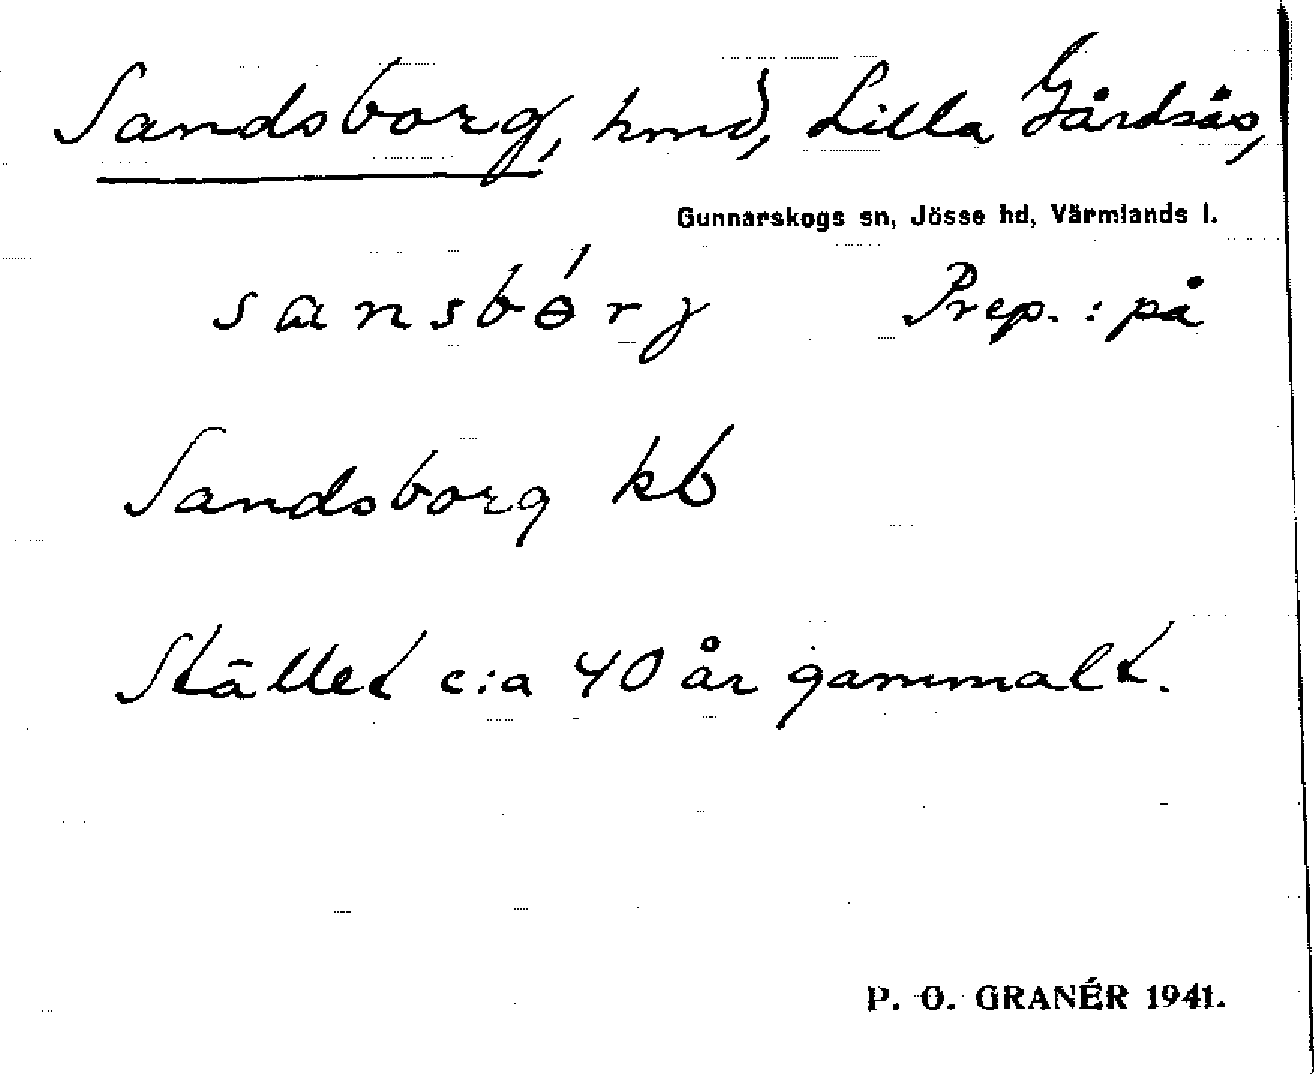 Sandsborg, hmd, Lilla Gårdsås,
Gunnarskogs sn, Jösse hd, Värmlands l.
sansbɵ́rj Prep. : på
Sandsborg kb
Stället c:a 40 år gammalt.
P. O. GRANÉR 1941.